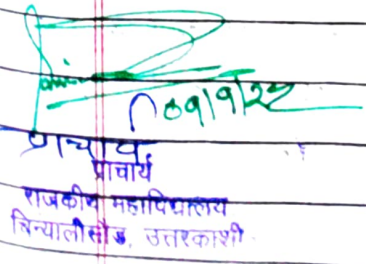 09/9/22
प्राचार्य
प्राचार्य
राजकीय महाविद्यालय
चिन्यालीसौड, उत्तरकाशी